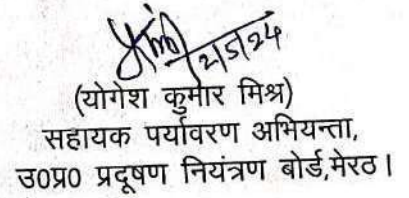 2/5/24
(योगेश कुमार मिश्र)
सहायक पर्यावरण अभियन्ता,
उ0प्र0 प्रदूषण नियंत्रण बोर्ड,मेरठ।